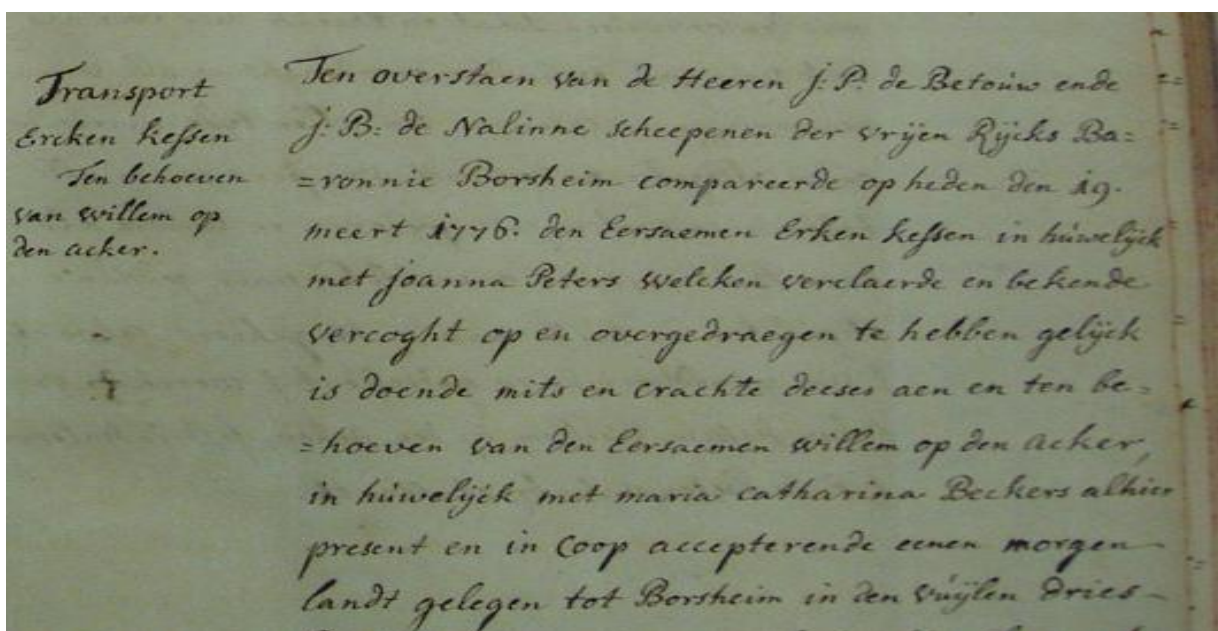 Transport
Ercken kessen
Ten behoeven
van willem op
den acker.
Ten overstaen van de Heeren J: P: de Betouw ende
J: B: de Nalinne scheepenen der vrijen Rijcks Ba=
=ronnie Borsheim compareerde op heden den 19.
meert 1776. den Eersaemen Erken kessen in húwelijck
met Joanna Peters welcken verclaerde en bekende
vercoght op en overgedraegen te hebben gelijck
is doende mits en crachte deeses aen en ten be=
=hoeven van den Eersaemen willem op den acker,
in húwelijck met maria catharina Beckers alhier
present en in Coop accepterende eenen morgen
landt gelegen tot Borsheim in den vuijlen dries